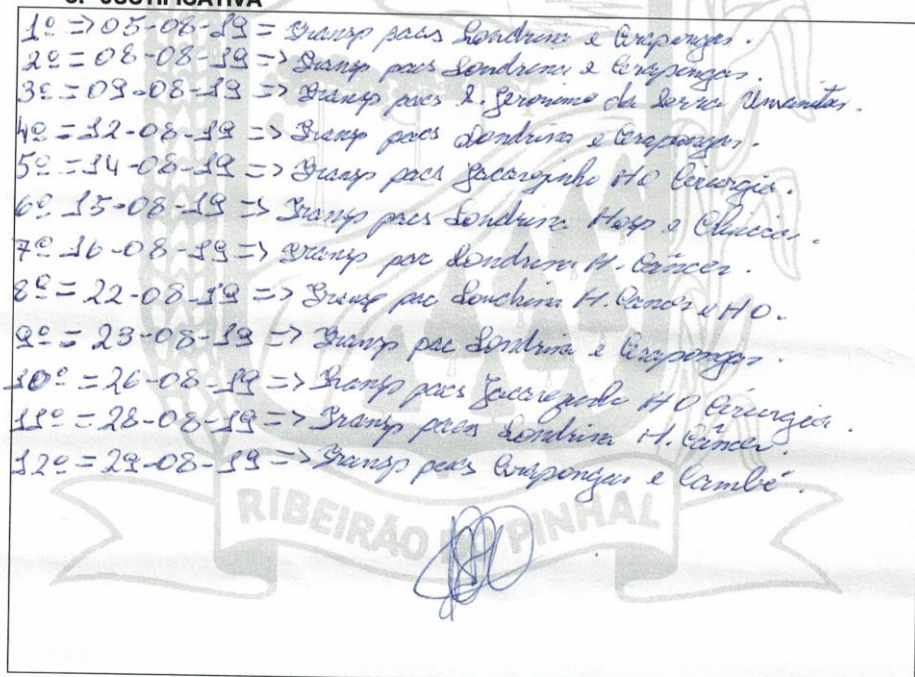 JUSTIFICATIVA
1º => 05-08-19 = Transp pacs Londrina e Arapongas.
2º = 08-08-19 => Transp pacs Londrina e Arapongas.
3º = 09-08-19 => Transp pacs S. Jeronimo da Serra Umanitas.
4º = 12-08-19 => Transp pacs Londrina e Arapongas.
5º = 14-08-19 => Transp pacs Jacarezinho HO Cirurgia.
6º 15-08-19 => Transp pacs Londrina Hosp e Clinicas.
7º 16-08-19 => Transp pac Londrina H. Câncer.
8º = 22-08-19 => Transp pac Londrina H. Cancer e HO.
9º = 23-08-19 => Transp pac Londrina e Arapongas.
10º = 26-08-19 => Transp pacs Jacarezinho HO Cirurgia.
11º = 28-08-19 => Transp pacs Londrina H. Câncer.
12º = 29-08-19 => Transp pacs Arapongas e Cambé.
RIBEIRÃO DO PINHAL